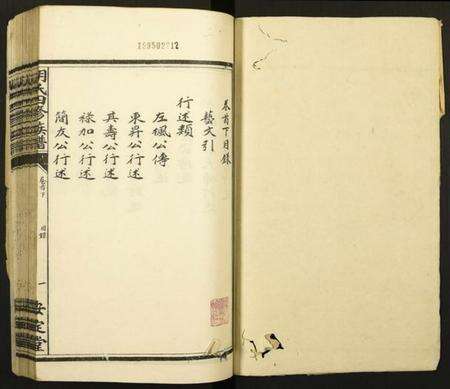 卷首下目錄
藝文引
行述類
左楓公傳
東昇公行述
其壽公行述
祿加公行述
簡友公行述
四修族譜
卷首下
目錄
一
安定堂